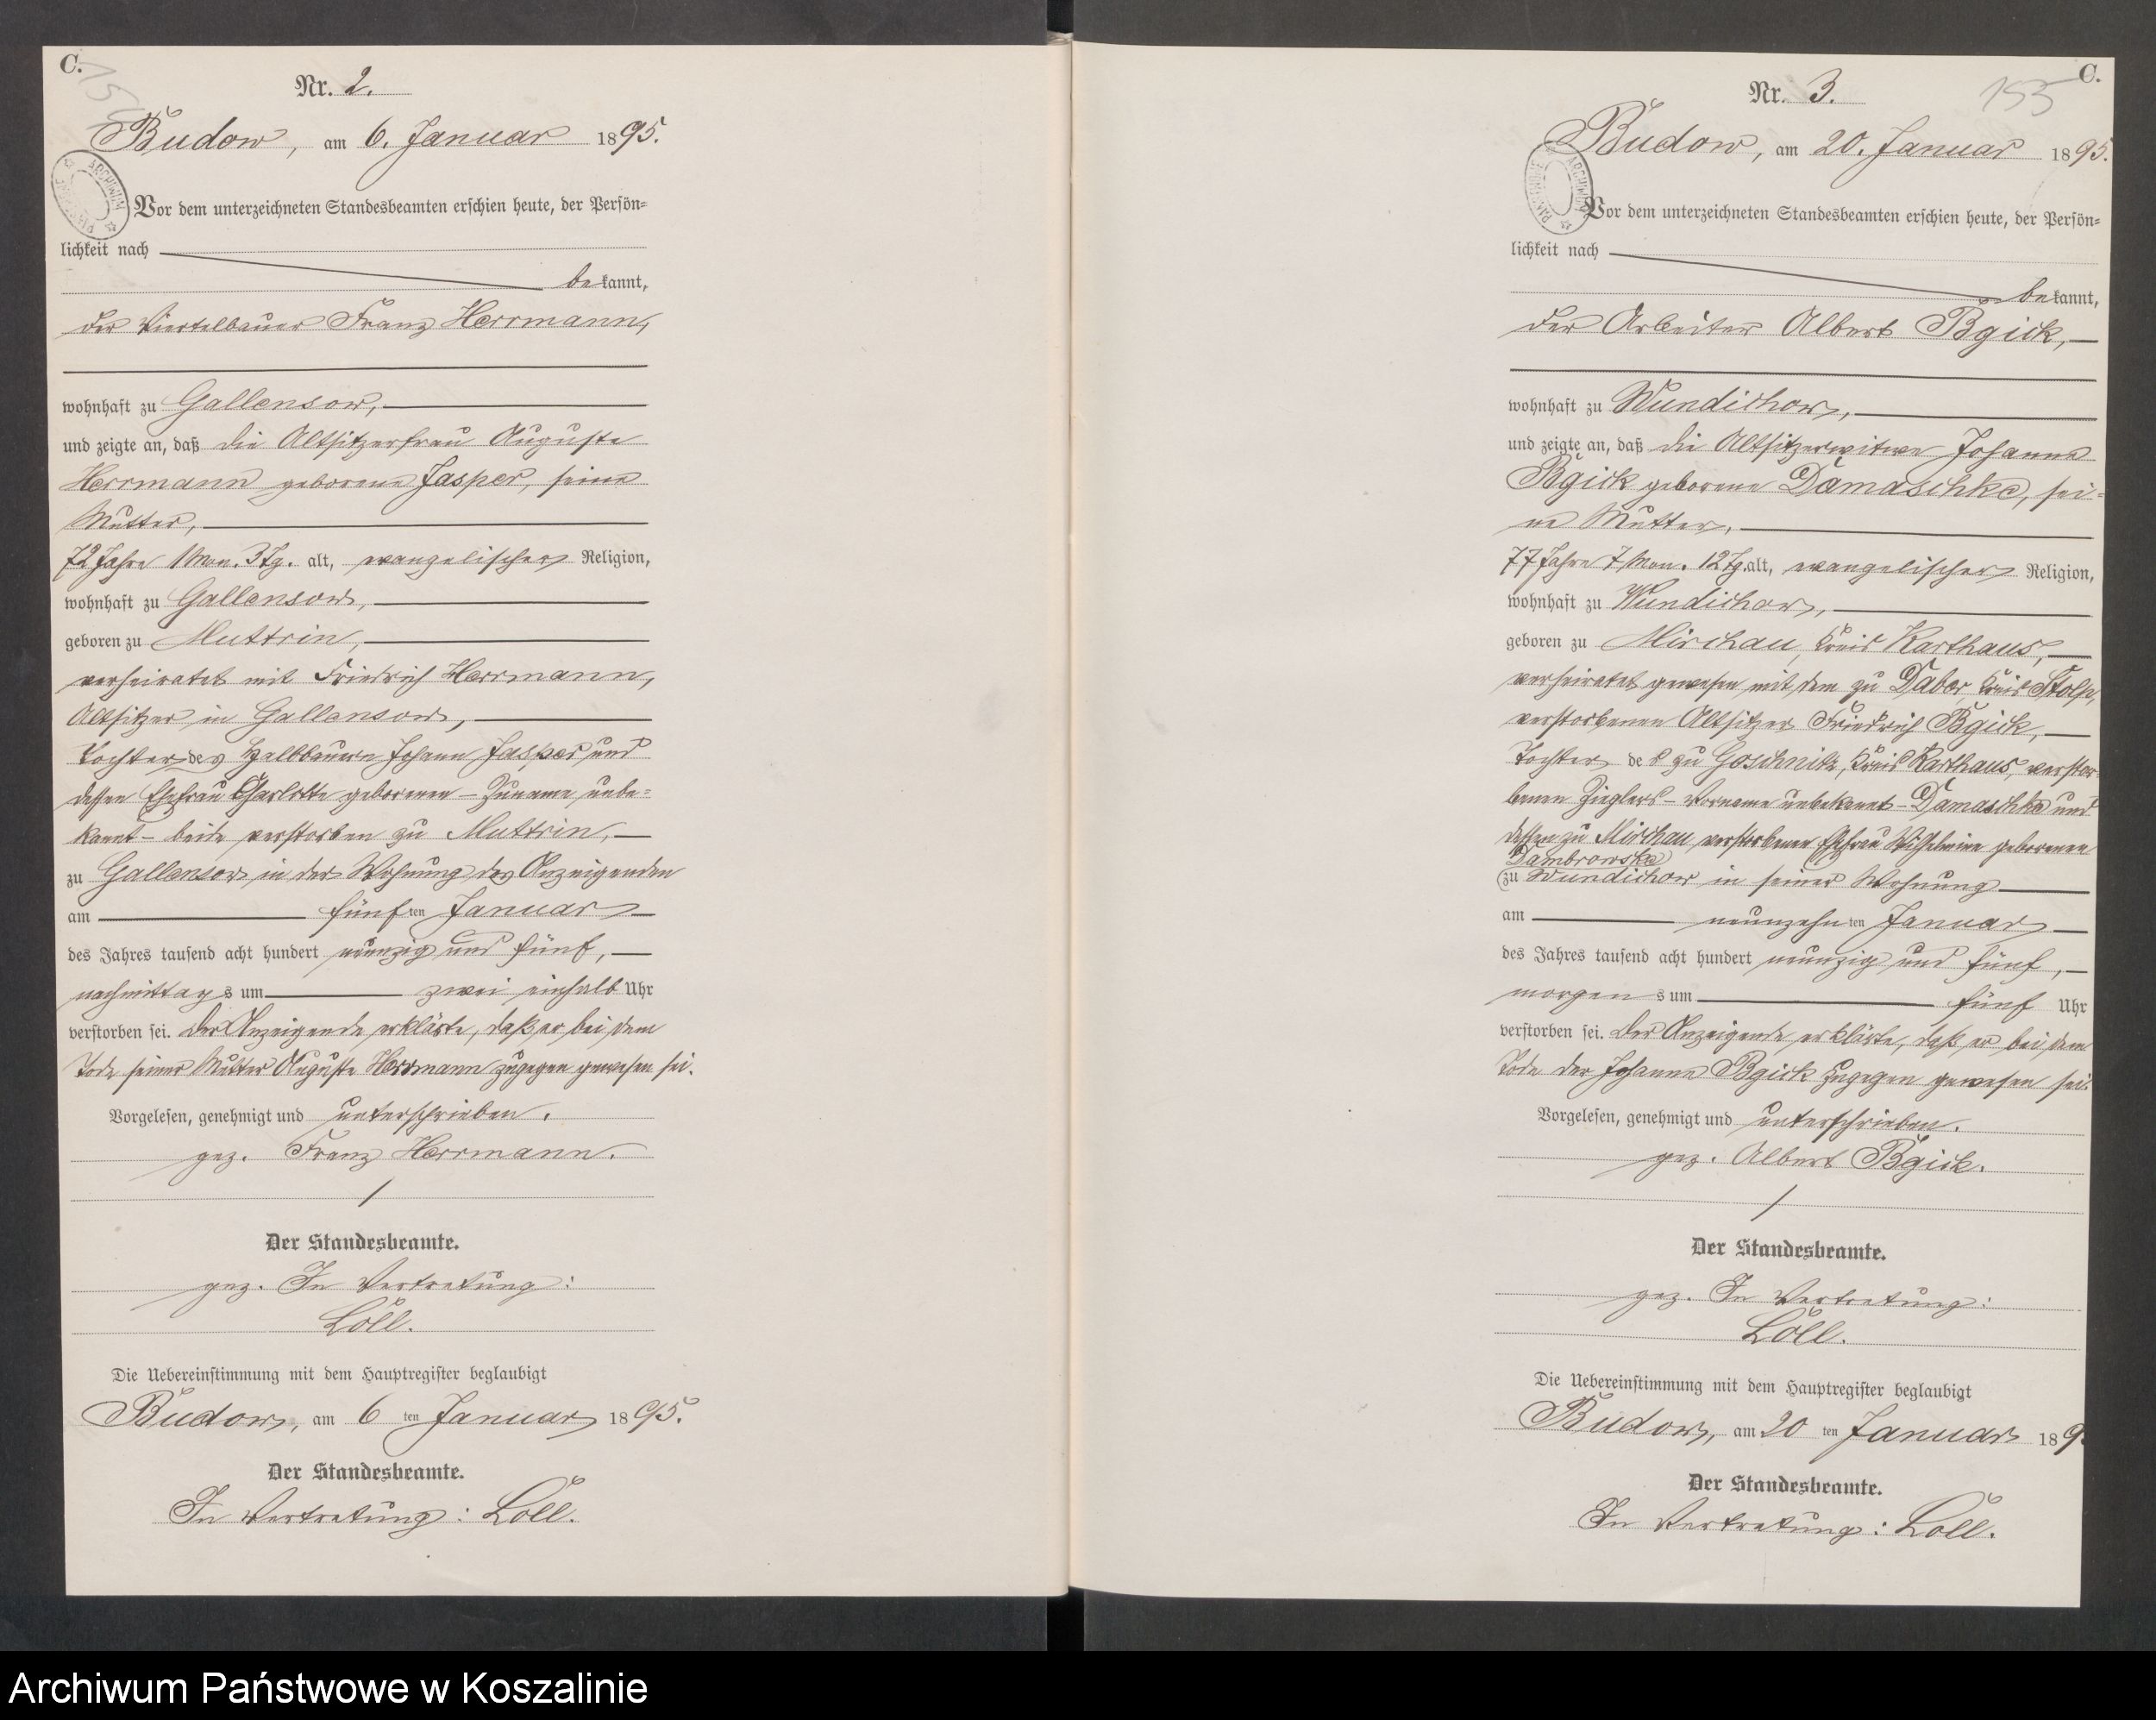 C.
Nr. 2.
Budow, am 6. Januar 1895.
Vor dem unterzeichneten Standesbeamten erschien heute, der Persön=
lichkeit nach
bekannt,
der Viertelbauer Franz Herrmann,
wohnhaft zu Gallensow,
und zeigte an, daß die Altsitzerfrau Auguste
Herrmann geborene Jasper, seine
Mutter,
72 Jahre 1 Mon. 3 Tg. alt, evangelischer Religion,
wohnhaft zu Gallensow,
geboren zu Muttrin,
verheiratet mit Friedrich Herrmann,
Altsitzer in Gallensow,
Tochter des Halbbauern Johann Jasper und
dessen Ehefrau Charlotte geborenen – Zuname unbe=
kannt – beide verstorben zu Muttrin,
zu Gallensow in der Wohnung des Anzeigenden
am fünften Januar
des Jahres tausend acht hundert neunzig und fünf,
nachmittags um zwei einhalb Uhr
verstorben sei. Der Anzeigende erklärte, daß er bei dem
Tode seiner Mutter Auguste Herrmann zugegen gewesen sei.
Vorgelesen, genehmigt und unterschrieben.
gez. Franz Herrmann.
Der Standesbeamte.
gez. In Vertretung:
Löll.
Die Uebereinstimmung mit dem Hauptregister beglaubigt
Budow, am 6 ten Januar 1895.
Der Standesbeamte.
In Vertretung: Löll.
C.
155
Nr. 3.
Budow, am 20. Januar 1895.
Vor dem unterzeichneten Standesbeamten erschien heute, der Persön=
lichkeit nach
bekannt,
der Arbeiter Albert Bgick,
wohnhaft zu Wundichow,
und zeigte an, daß die Altsitzerwitwe Johanne
Bgick geborene Damaschke, sei=
ne Mutter,
77 Jahre 7 Mon. 12 Tg. alt, evangelischer Religion,
wohnhaft zu Wundichow,
geboren zu Mirchau, Kreis Karthaus,
verheiratet gewesen mit dem zu Dabor, Kreis Stolp,
verstorbenen Altsitzer Friedrich Bgick,
Tochter des zu Goschnitz, Kreis Karthaus, verstor
benen Zieglers – Vorname unbekannt – Damaschke und
dessen zu Mirchau verstorbenen Ehefrau Wilhelmine geborenen
Dambrowske
zu Wundichow in seiner Wohnung
am neunzehnten Januar
des Jahres tausend acht hundert neunzig und fünf,
morgens um fünf Uhr
verstorben sei. Der Anzeigende erklärte, daß er bei dem
Tode der Johanne Bgick zugegen gewesen sei.
Vorgelesen, genehmigt und unterschrieben.
gez. Albert Bgick.
Der Standesbeamte.
gez. In Vertretung:
Löll.
Die Uebereinstimmung mit dem Hauptregister beglaubigt
Budow, am 20 ten Januar 189
Der Standesbeamte.
In Vertretung: Löll.
Archiwum Państwowe w Koszalinie